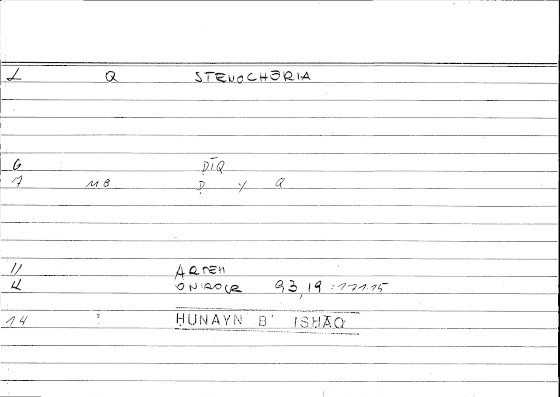 L Q STENOCHŌRIA
6 ḌĪQ
7 MB Ḍ Y Q
11 ARTEM
ONIROCR 93,19 : 171.15
14 : ḤUNAYN B' ISḤĀQ